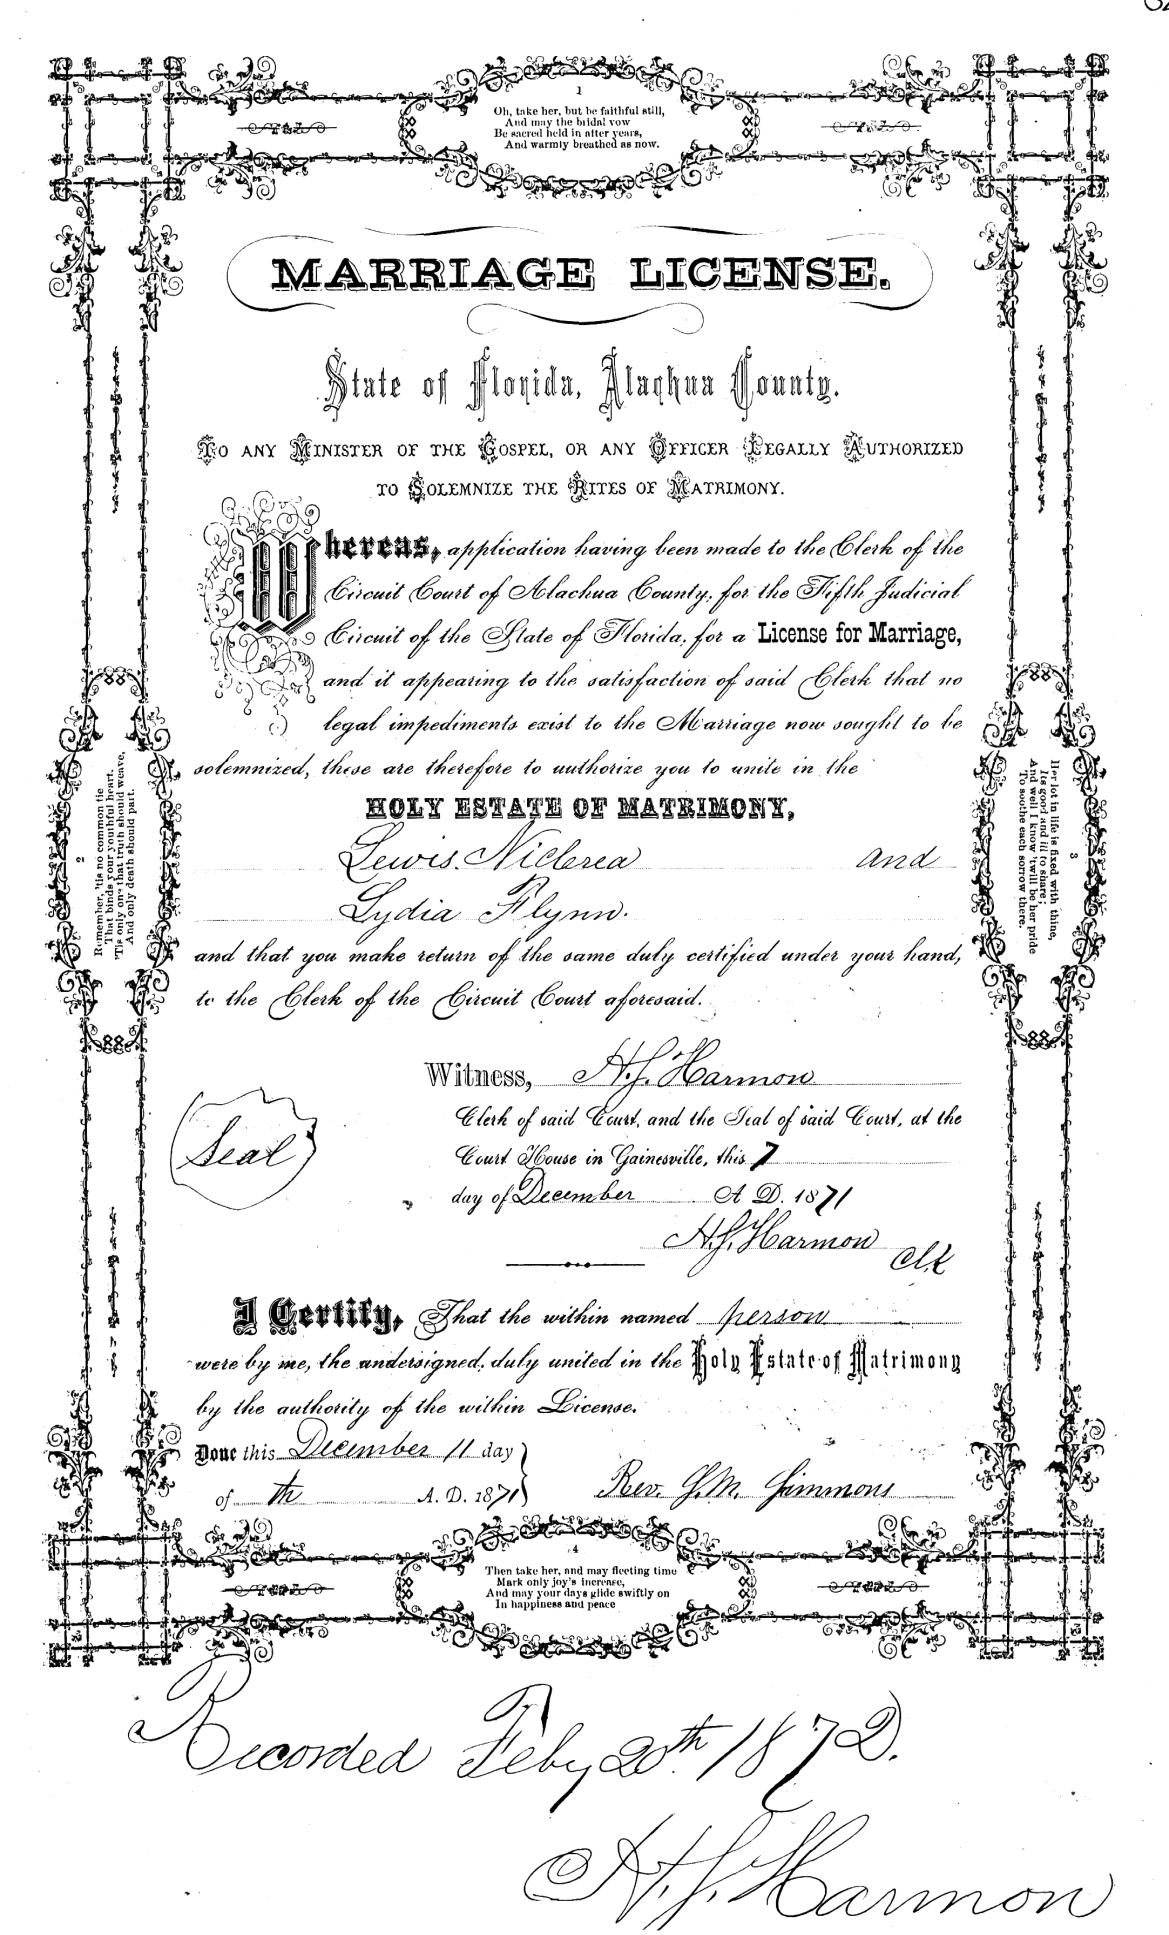 1
Oh, take her, but be faithful still,
And may the bridal vow
Be sacred held in after years,
And warmly breathed as now.
MARRIAGE LICENSE.
State of Florida, Alachua County.
To any Minister of the Gospel, or any Officer Legally Authorized
to Solemnize the Rites of Matrimony.
Whereas, application having been made to the Clerk of the
Circuit Court of Alachua County, for the Fifth Judicial
Circuit of the State of Florida, for a License for Marriage,
and it appearing to the satisfaction of said Clerk that no
legal impediments exist to the Marriage now sought to be
solemnized, these are therefore to authorize you to unite in the
HOLY ESTATE OF MATRIMONY,
Lewis Niclerea and
Lydia Flynn.
and that you make return of the same duly certified under your hand,
to the Clerk of the Circuit Court aforesaid.
2
Remember, 'tis no common tie
That binds your youthful heart,
'Tis only one that truth should weave,
And only death should part.
3
Her lot in life is fixed with thine,
Its good and ill to share;
And well I know 'twill be her pride
To soothe each sorrow there.
Witness, H.S. Harmon
Clerk of said Court, and the Seal of said Court, at the
Court House in Gainesville, this 7
day of December A. D. 1871
Seal
H.S. Harmon
Clk
I Certify, That the within named person
were by me, the undersigned, duly united in the Holy Estate of Matrimony
by the authority of the within License.
Done this December 11 day
of th A. D. 1871
Rev. G.M. Simmons
4
Then take her, and may fleeting time
Mark only joy's increase,
And may your days glide swiftly on
In happiness and peace
Recorded Feby 20th. 187D.
H.S. Harmon